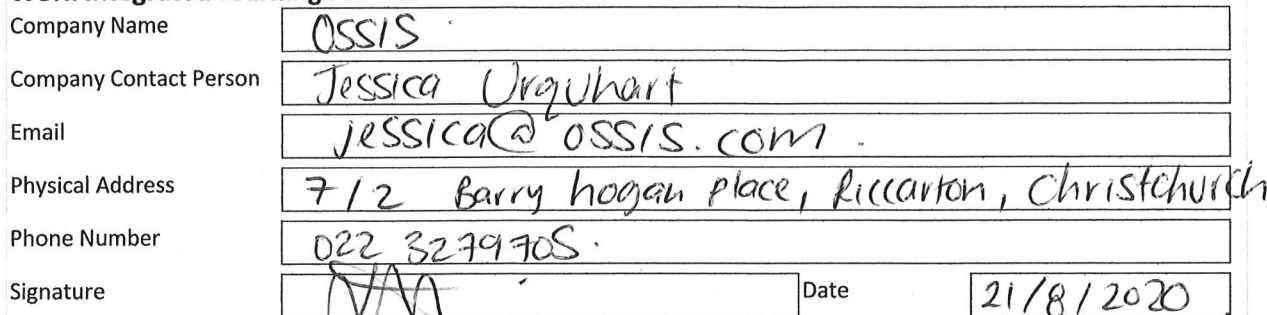 Company Name OSSIS
Company Contact Person Jessica Urquhart
Email jessica@ossis.com
Physical Address 7/2 Barry hogan place, Riccarton, Christchurch
Phone Number 022 3279705
Signature Date 21/8/2020